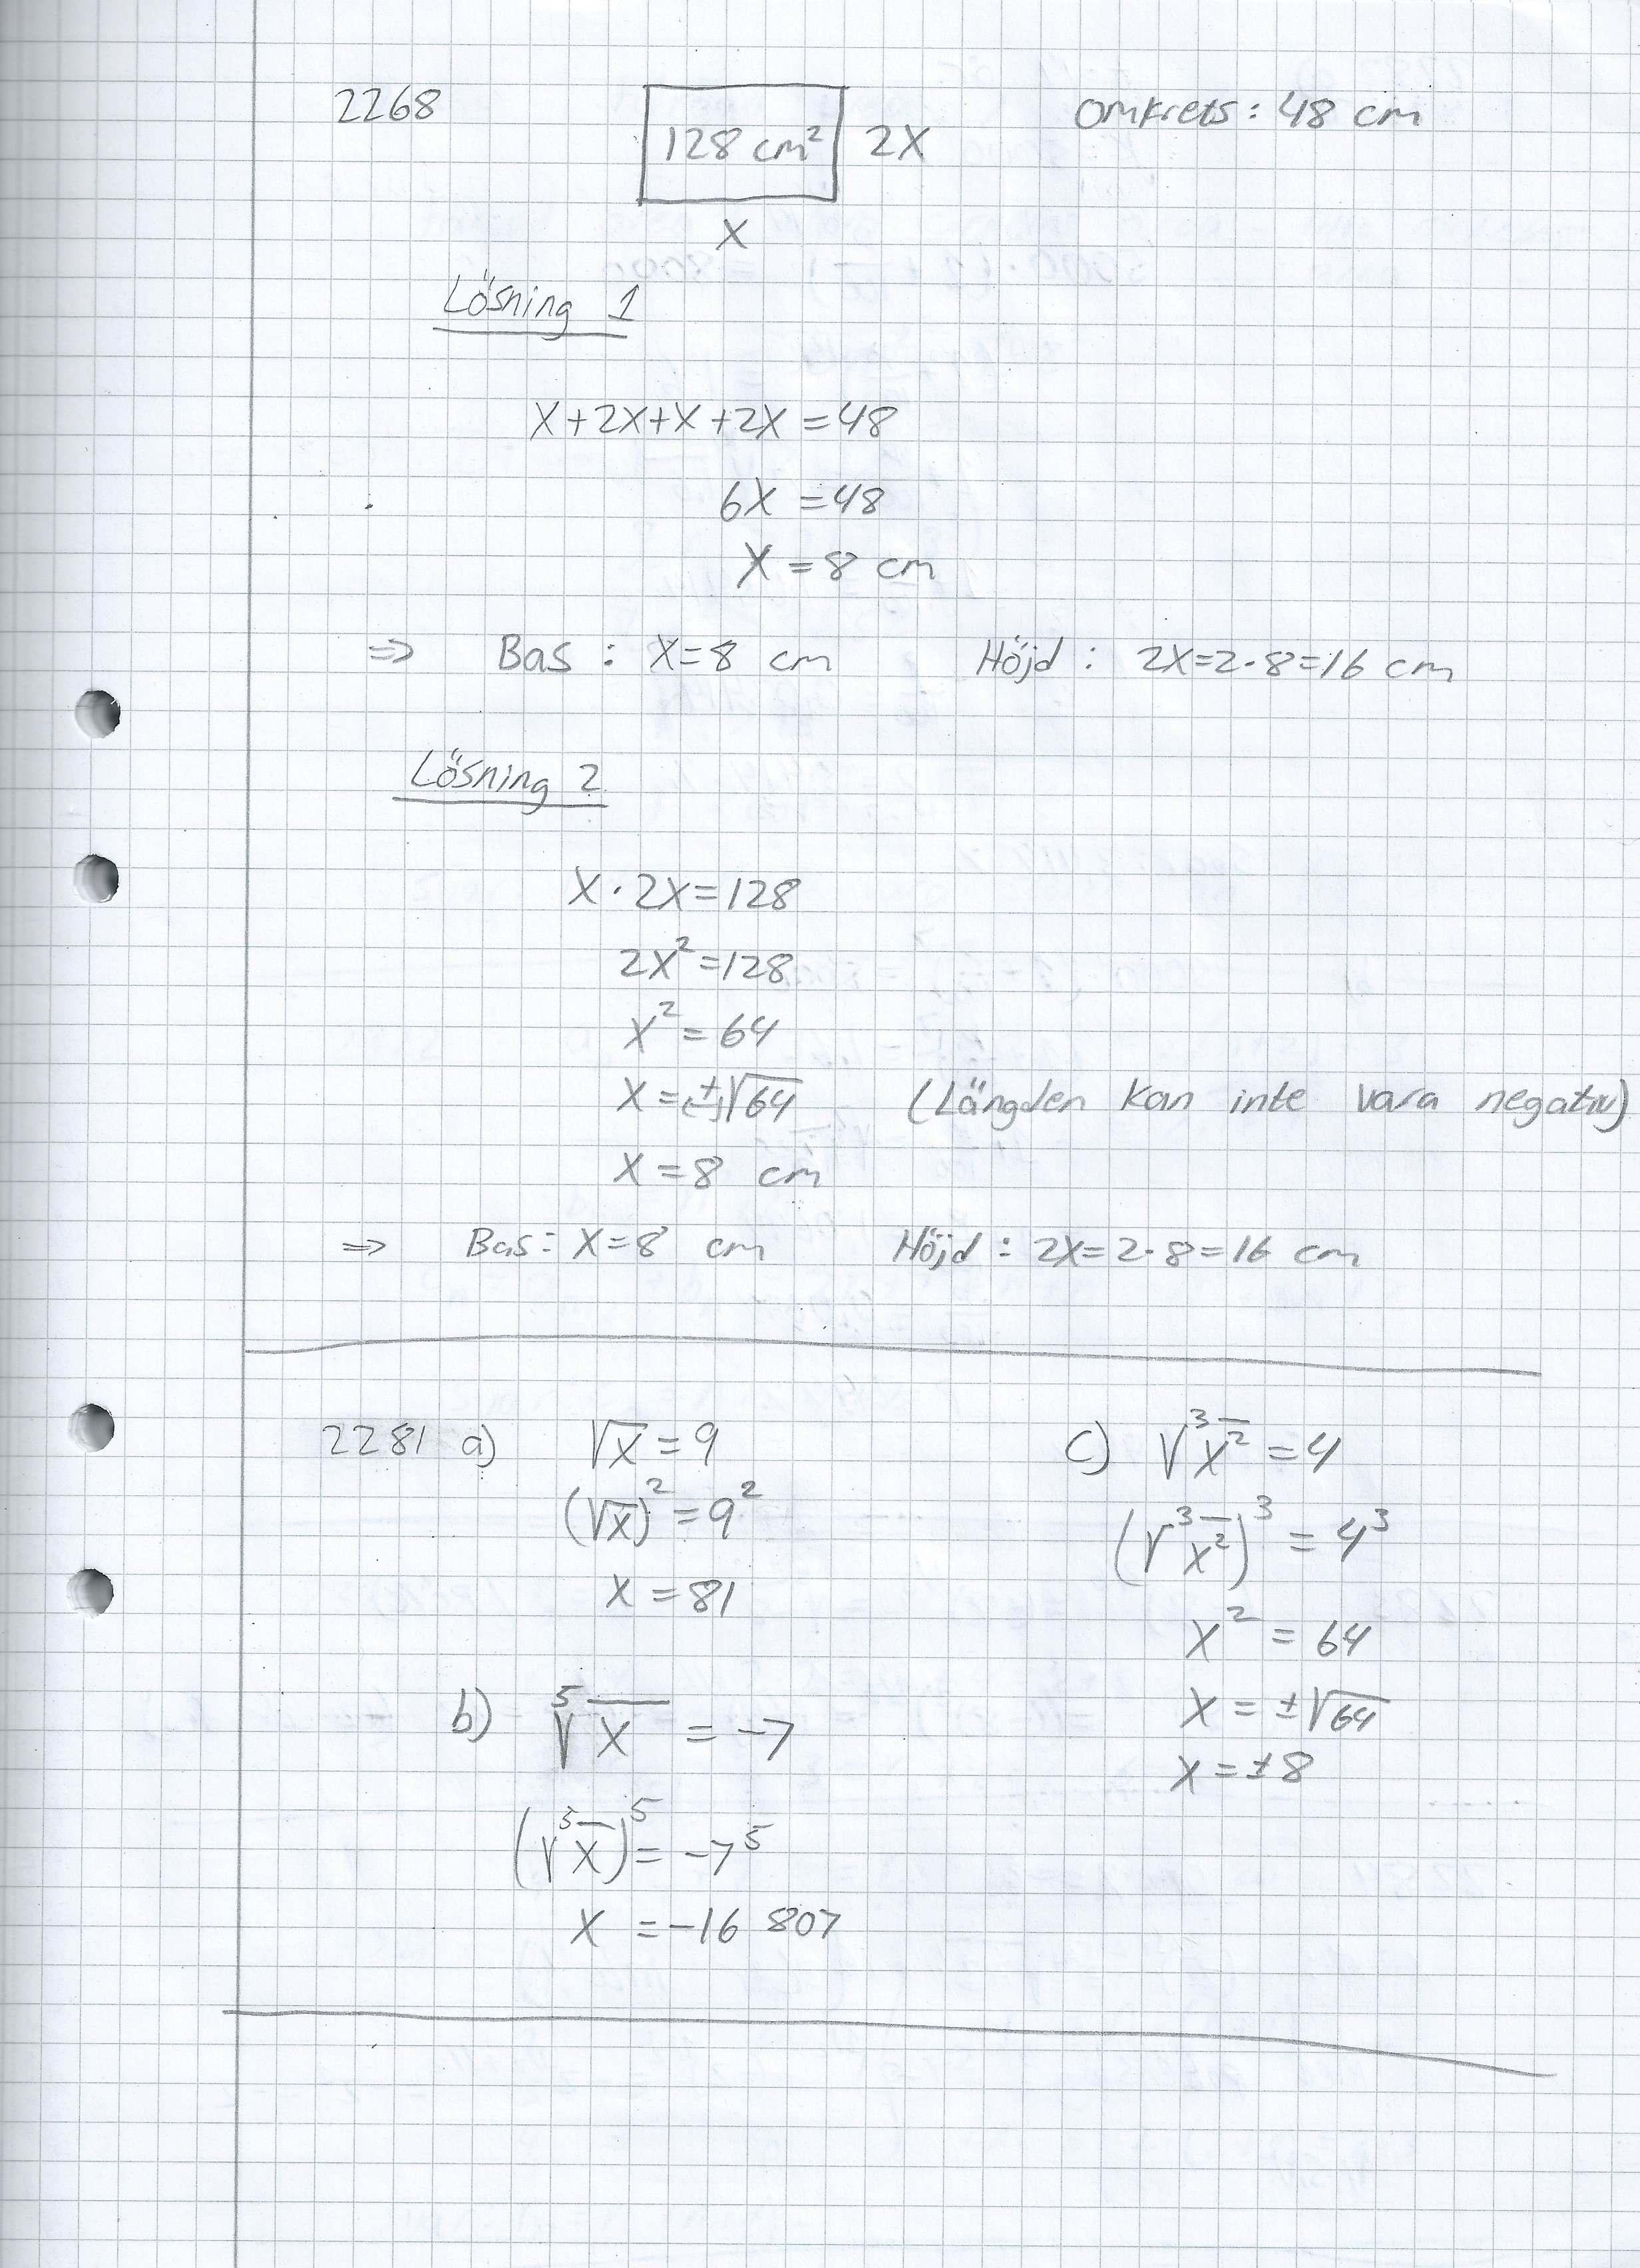 2268 128 cm² 2X Omkrets: 48 cm
X
Lösning 1
X+2X+X+2X=48
6X=48
X=8 cm
⇒ Bas: X=8 cm Höjd: 2X=2·8=16 cm
Lösning 2
X·2X=128
2X²=128
X²=64
X=(±)√64 (Längden kan inte vara negativ)
X=8 cm
⇒ Bas: X=8 cm Höjd: 2X=2·8=16 cm
2281 a) √X=9
(√X)²=9²
X=81
b) ⁵√X=-7
(⁵√X)⁵=-7⁵
X=-16 807
c) ³√X²=4
(³√X²)³=4³
X²=64
X=±√64
X=±8